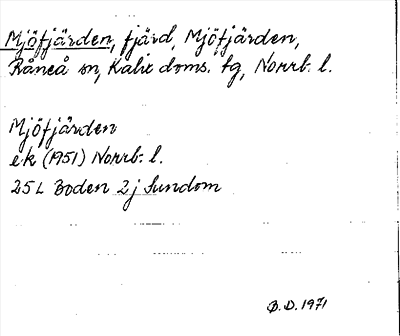 Mjöfjärden, fjärd, Mjöfjärden,
Råneå sn, Kalix doms. tg, Norrb. l.
Mjöfjärden
ek (1951) Norrb. l.
25 L Boden 2 j Sundom
B.D. 1971